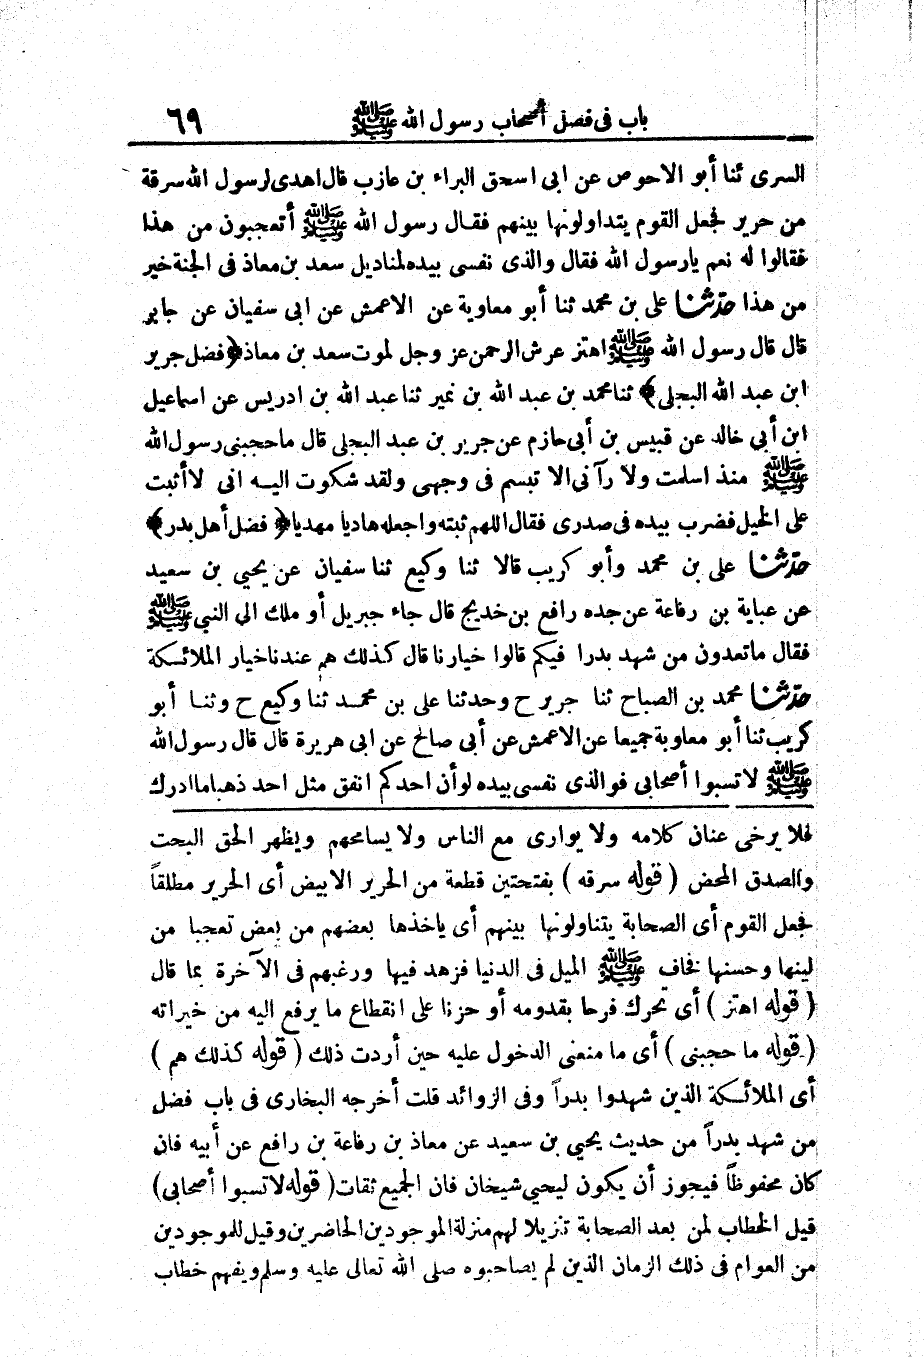 باب فى فضل أصحاب رسول الله ﷺ ٦٩
السرى ثنا أبو الاحوص عن ابى اسحق البراء بن عازب قال اهدى لرسول الله سرقة
من حرير فجعل القوم يتداولونها بينهم فقال رسول الله ﷺ أتعجبون من هذا
فقالوا له نعم يا رسول الله فقال والذى نفسى بيده لمناديل سعد بن معاذ فى الجنة خير
من هذا حدّثنا على بن محمد ثنا أبو معاوية عن الاعمش عن ابى سفيان عن جابر
قال قال رسول الله ﷺ اهتز عرش الرحمن عز وجل لموت سعد بن معاذ ﴿فضل جرير
ابن عبد الله البجلى﴾ ثنا محمد بن عبد الله بن نمير ثنا عبد الله بن ادريس عن اسماعيل
ابن أبي خالد عن قبيس بن أبى حازم عن جرير بن عبد البجلى قال ما حجبنى رسول الله
ﷺ منذ اسلمت ولا رآنى الا تبسم فى وجهى ولقد شكوت اليه انى لا أثبت
على الخيل فضرب بيده فى صدرى فقال اللهم ثبته واجعله هاديا مهديا ﴿فضل أهل بدر﴾
حدّثنا على بن محمد وأبو كريب قالا ثنا وكيع ثنا سفيان عن يحيي بن سعيد
عن عباية بن رفاعة عن جده رافع بن خديج قال جاء جبريل أو ملك الى النبي ﷺ
فقال ما تعدون من شهد بدرا فيكم قالوا خيارنا قال كذلك هم عندنا خيار الملائكة
حدّثنا محمد بن الصباح ثنا جرير ح وحدثنا على بن محمد ثنا وكيع ح وثنا أبو
كريب ثنا أبو معاوية جميعا عن الاعمش عن أبي صالح عن ابى هريرة قال قال رسول الله
ﷺ لا تسبوا أصحابي فوالذى نفسى بيده لو أن احدكم انفق مثل احد ذهبا ما ادرك
فلا يرخى عنان كلامه ولا يوارى مع الناس ولا يسامحهم ويظهر الحق البحت
والصدق المحض (قوله سرقه) بفتحتين قطعة من الحرير الابيض أى الحرير مطلقاً
فجعل القوم أى الصحابة يتناولونها بينهم أى ياخذها بعضهم من بعض تعجبا من
لينها وحسنها فخاف ﷺ الميل فى الدنيا فزهد فيها ورغبهم فى الآخرة بما قال
(قوله اهتز) أى تحرك فرحا بقدومه أو حزنا على انقطاع ما يرفع اليه من خيراته
(قوله ما حجبنى) أى ما منعنى الدخول عليه حين أردت ذلك (قوله كذلك هم)
أى الملائكة الذين شهدوا بدراً وفى الزوائد قلت أخرجه البخارى فى باب فضل
من شهد بدراً من حديث يحيي بن سعيد عن معاذ بن رفاعة بن رافع عن أبيه فان
كان محفوظاً فيجوز أن يكون ليحيى شيخان فان الجميع ثقات (قوله لا تسبوا أصحابى)
قيل الخطاب لمن بعد الصحابة تنزيلا لهم منزلة الموجودين الحاضرين وقيل للموجودين
من العوام فى ذلك الزمان الذين لم يصاحبوه صلى الله تعالى عليه وسلم ويفهم خطاب